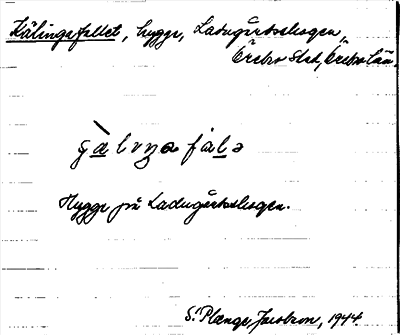 Kälingafallet, hygge, Ladugårdsskogen,
Örebro stad, Örebro län.
Hygge på Ladugårdsskogen.
S. Plænge Jacobson, 1944.